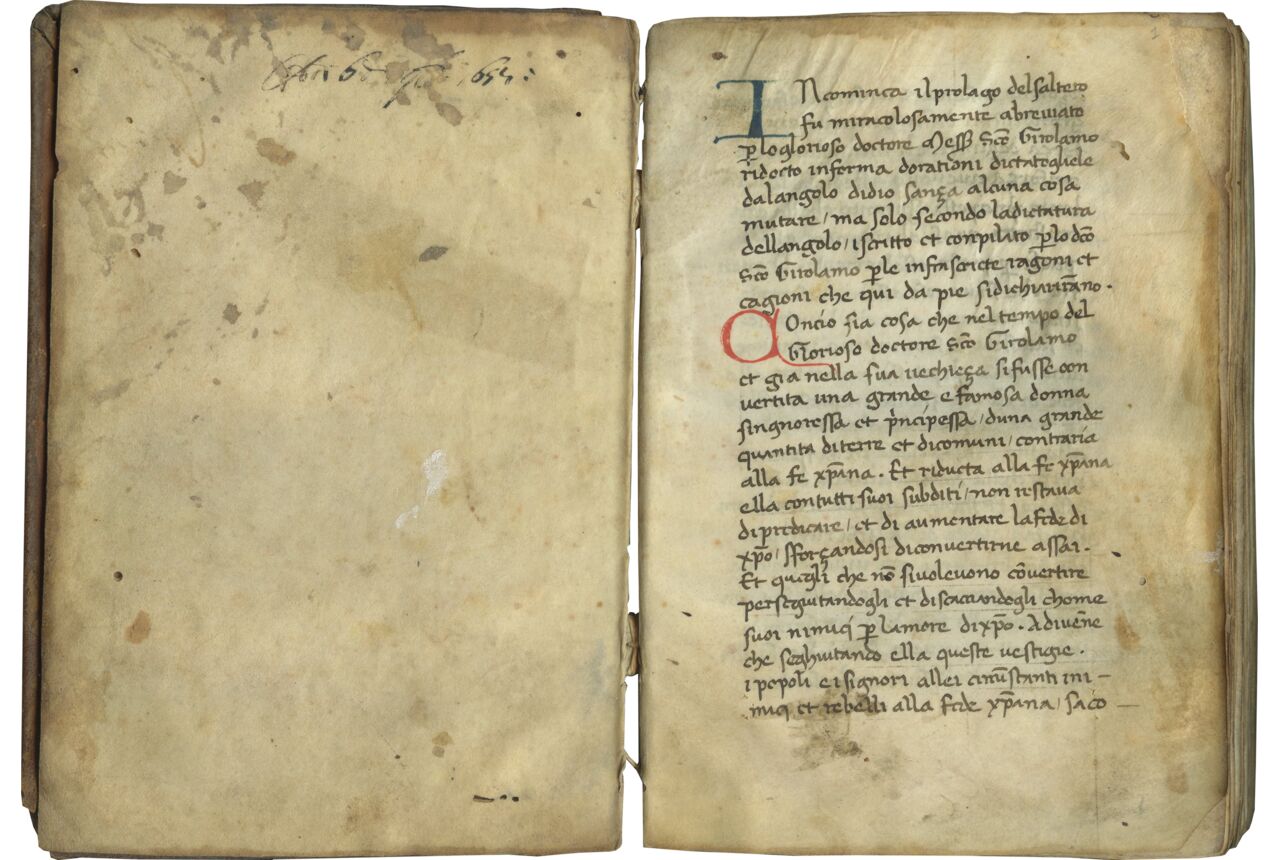 INcominca ilprolago delsaltero
fu miracolosamente abreviato
ꝑ loglorioso doctore Mess̅ Sc̅o Girolamo
ridocto informa dorationi dictatogliele
dalangolo didio sança alcuna cosa
mutare / ma solo secondo ladictatura
dellangolo / iscritto et conpilato ꝑ lo dc̅o
Sc̅o Girolamo ꝑ le infrascricte ragoni et
cagioni che qui da pie sidichiarirano .
COncio sia cosa che nel tempo del
Glorioso doctore Sc̅o Girolamo
et gia nella sua vechieça sifusse con
vertita una grande e famosa donna
singnoressa et pr̅ncipessa / duna grande
quantita diterre et dicomuni / contraria
alla fe xp̅ana . Et riducta alla fe xp̅ana
ella contutti suoi subditi / non restava
dipredicare / et di aumentare lafede di
xp̅o / sforçandosi diconvertirne assai .
Et quegli che no̅ sivolevono co̅vertire
perseguitandogli et discacciandogli chome
suoi nimici ꝑ lamore dixp̅o . Adive̅ne
che seghuitando ella queste vestigie .
i popoli e i signori allei circu̅stanti ini –
mici et rebelli alla fede xp̅ana / saco